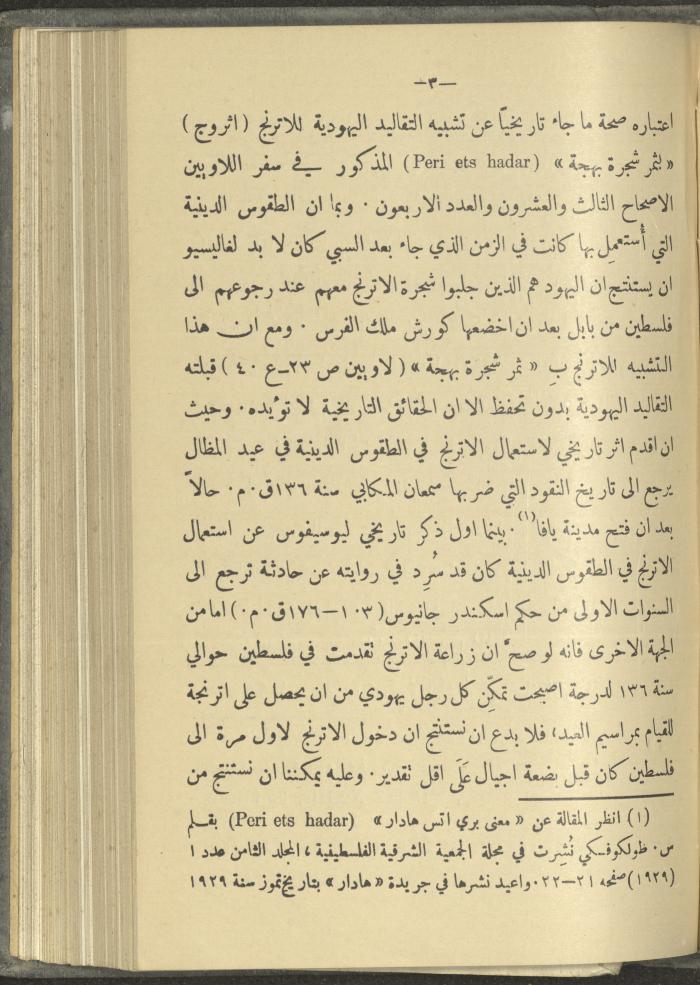 —٣—
اعتباره صحة ما جاء تاريخياً عن تشبيه التقاليد اليهودية للاترنج ( اثروج )
« لثمر شجرة بهجة » (Peri ets hadar) المذكور في سفر اللاويين
الاصحاح الثالث والعشرون والعدد الاربعون . وبما ان الطقوس الدينية
التي أُستعمِل بها كانت في الزمن الذي جاء بعد السبي كان لا بد لغاليسيو
ان يستنتج ان اليهود هم الذين جلبوا شجرة الاترنج معهم عند رجوعهم الى
فلسطين من بابل بعد ان اخضعها كورش ملك الفرس . ومع ان هذا
التشبيه للاترنج بِ « ثمر شجرة بهجة » ( لاويين ص ٢٣-ع ٤٠ ) قبلته
التقاليد اليهودية بدون تحفظ الا ان الحقائق التاريخية لا تؤيده . وحيث
ان اقدم اثر تاريخي لاستعمال الاترنج في الطقوس الدينية في عيد المظال
يرجع الى تاريخ النقود التي ضربها سمعان المكابي سنة ١٣٦ق.م. حالاً
بعد ان فتح مدينة يافا(١) . بينما اول ذكر تاريخي ليوسيفوس عن استعمال
الاترنج في الطقوس الدينية كان قد سُرِد في روايته عن حادثة ترجع الى
السنوات الاولى من حكم اسكندر جانيوس (١٠٣—١٧٦ق.م.) اما من
الجهة الاخرى فانه لو صحَّ ان زراعة الاترنج تقدمت في فلسطين حوالي
سنة ١٣٦ لدرجة اصبحت تمكِّن كل رجل يهودي من ان يحصل على اترنجة
للقيام بمراسيم العيد، فلا بدع ان نستنتج ان دخول الاترنج لاول مرة الى
فلسطين كان قبل بضعة اجيال عَلَى اقل تقدير . وعليه يمكننا ان نستنتج من
(١) انظر المقالة عن « معنى بري اتس هادار » (Peri ets hadar) بقلم
س. طولكوفسكي نُشِرت في مجلة الجمعية الشرقية الفلسطينية ، المجلد الثامن عدد ١
(١٩٢٩) صفحه ٢١—٢٢. واعيد نشرها في جريدة « هادار » بتاريخ تموز سنة ١٩٢٩